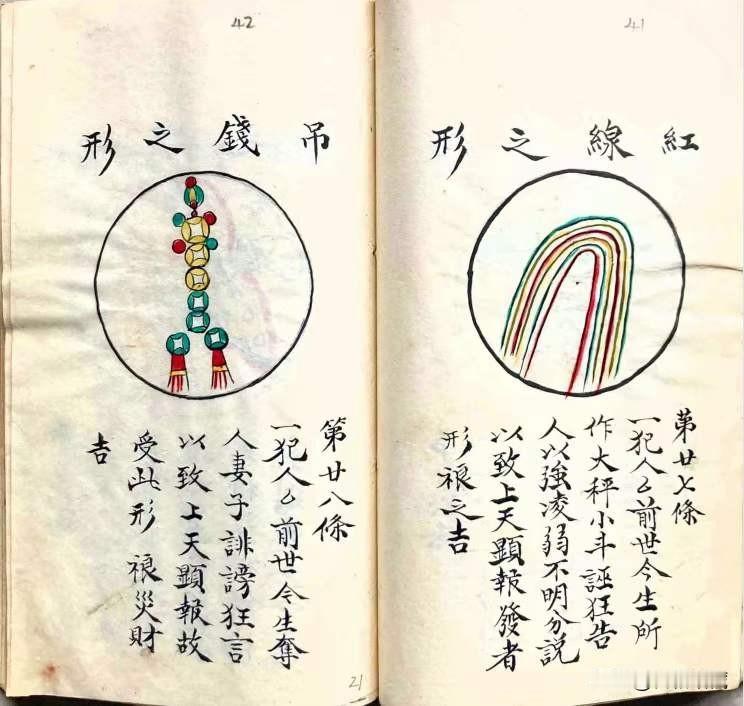 41
紅線之形
第廿七條
一犯人厶前世今生所
作大秤小斗誣狂告
人以強凌弱不明分説
以致上天顯報發者
形禒之吉
42
吊錢之形
第廿八條
一犯人厶前世今生奪
人妻子誹謗狂言
以致上天顯報故
受此形 禒災財
吉
21